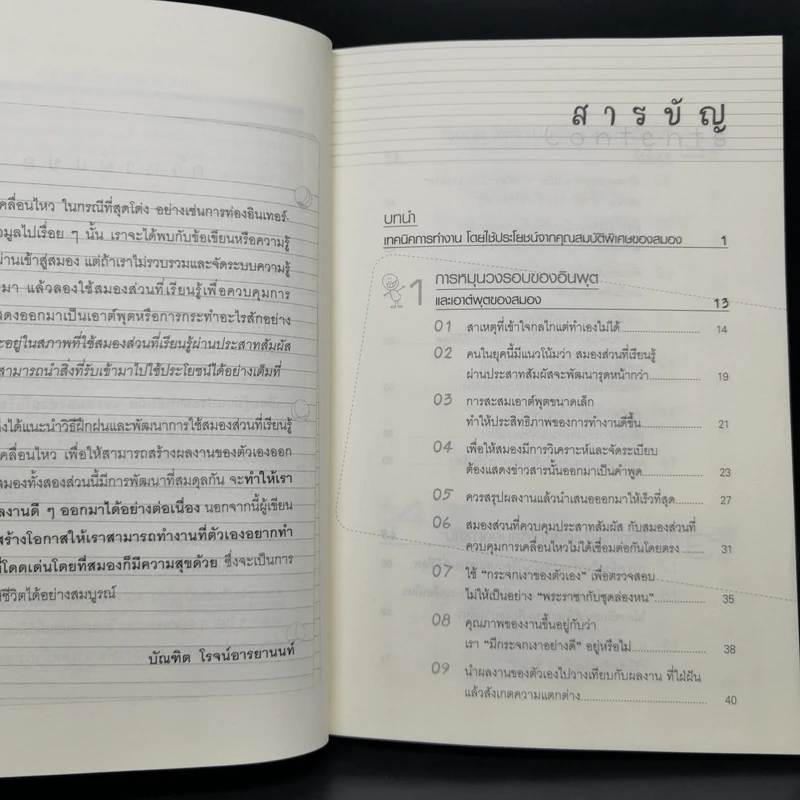 คลื่อนไหว ในกรณีที่สุดโต่ง อย่างเช่นการท่องอินเทอร์-
มูลไปเรื่อย ๆ นั้น เราจะได้พบกับข้อเขียนหรือความรู้
ผ่านเข้าสู่สมอง แต่ถ้าเราไม่รวบรวมและจัดระบบความรู้
มา แล้วลองใช้สมองส่วนที่เรียนรู้เพื่อควบคุมการ
แสดงออกมาเป็นเอาต์พุตหรือการกระทำอะไรสักอย่าง
ะอยู่ในสภาพที่ใช้สมองส่วนที่เรียนรู้ผ่านประสาทสัมผัส
สามารถนำสิ่งที่รับเข้ามาไปใช้ประโยชน์ได้อย่างเต็มที่
งได้แนะนำวิธีฝึกฝนและพัฒนาการใช้สมองส่วนที่เรียนรู้
คลื่อนไหว เพื่อให้สามารถสร้างผลงานของตัวเองออก
สมองทั้งสองส่วนนี้มีการพัฒนาที่สมดุลกัน จะทำให้เรา
ลงานดี ๆ ออกมาได้อย่างต่อเนื่อง นอกจากนี้ผู้เขียน
สร้างโอกาสให้เราสามารถทำงานที่ตัวเองอยากทำ
ที่โดดเด่นโดยที่สมองก็มีความสุขด้วย ซึ่งจะเป็นการ
ชีวิตได้อย่างสมบูรณ์
บัณฑิต โรจน์อารยานนท์
สารบัญ
Contents
บทนำ
เทคนิคการทำงาน โดยใช้ประโยชน์จากคุณสมบัติพิเศษของสมอง 1
1 การหมุนวงรอบของอินพุต
และเอาต์พุตของสมอง 13
01 สาเหตุที่เข้าใจกลไกแต่ทำเองไม่ได้ 14
02 คนในยุคนี้มีแนวโน้มว่า สมองส่วนที่เรียนรู้
ผ่านประสาทสัมผัสจะพัฒนารุดหน้ากว่า 19
03 การสะสมเอาต์พุตขนาดเล็ก
ทำให้ประสิทธิภาพของการทำงานดีขึ้น 21
04 เพื่อให้สมองมีการวิเคราะห์และจัดระเบียบ
ต้องแสดงข่าวสารนั้นออกมาเป็นคำพูด 23
05 ควรสรุปผลงานแล้วนำเสนอออกมาให้เร็วที่สุด 27
06 สมองส่วนที่ควบคุมประสาทสัมผัส กับสมองส่วนที่
ควบคุมการเคลื่อนไหวไม่ได้เชื่อมต่อกันโดยตรง 31
07 ใช้ “กระจกเงาของตัวเอง” เพื่อตรวจสอบ
ไม่ให้เป็นอย่าง “พระราชากับชุดล่องหน” 35
08 คุณภาพของงานขึ้นอยู่กับว่า
เรา “มีกระจกเงาอย่างดี” อยู่หรือไม่ 38
09 นำผลงานของตัวเองไปวางเทียบกับผลงาน ที่ใฝ่ฝัน
แล้วสังเกตความแตกต่าง 40